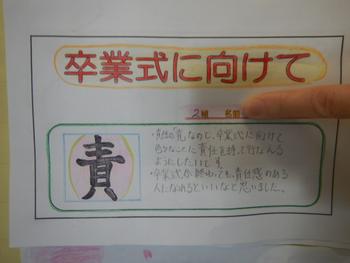 卒業式に向けて
2組 名前
責
・責任の責なので、卒業式に向けて
色々なことに責任を持って行なえる
ようにしたいです。
・卒業式が終わっても、責任感のある
人になれるといいなと思いました。